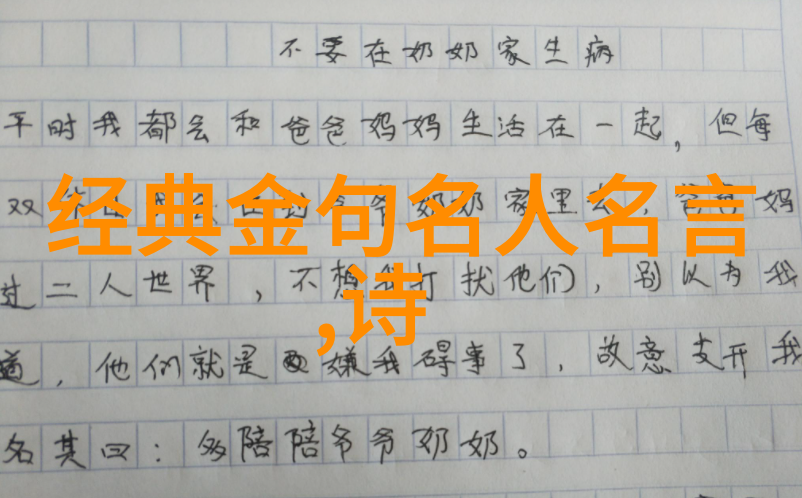 不要在奶奶家生病
平时我都会和爸爸妈妈生活在一起，但每
双休日我会回到爷爷奶奶家里去，爸爸妈
过二人世界，不想我打扰他们，别以为我
道，他们就是嫌我碍事了，故意支开我
名其曰：多陪陪爷爷奶奶。
经典金句名人名言
,诗